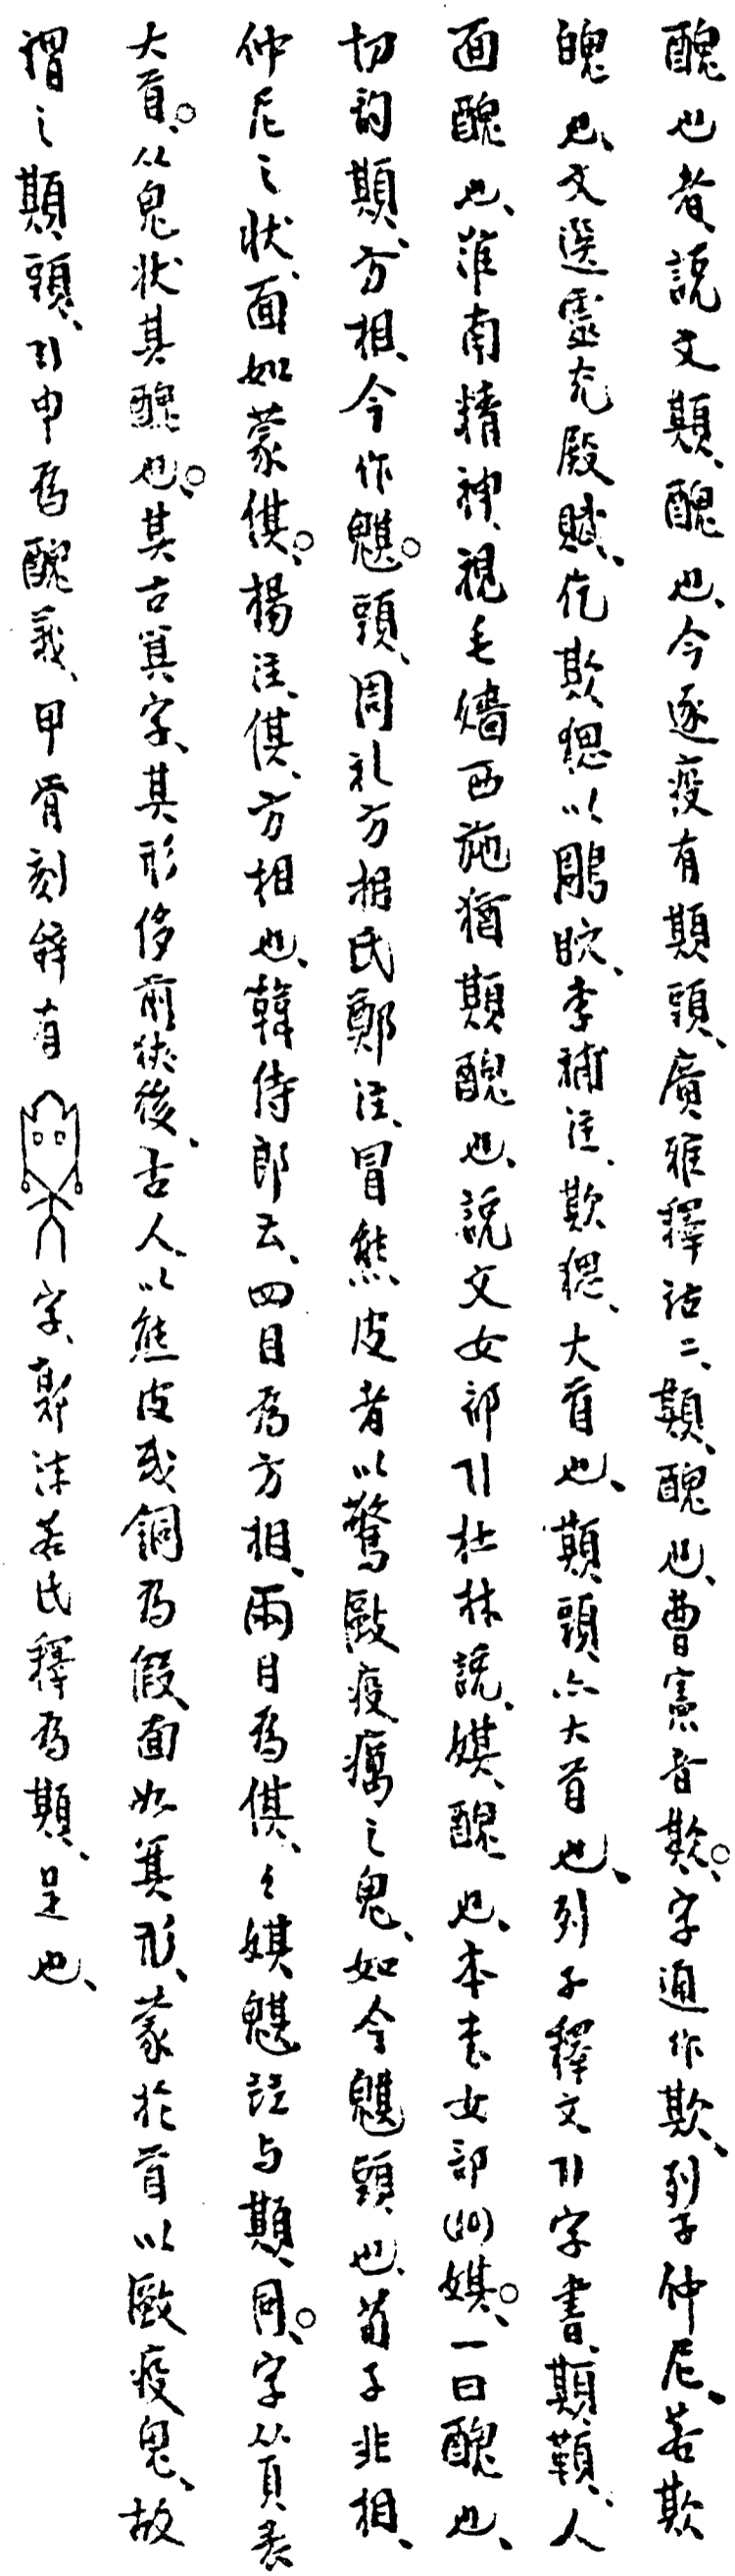 醜也者、説文䫏、醜也、今逐疫有䫏頭、廣雅釋詁二、䫏、醜也、曹憲音欺。字通作欺、列子仲尼、若欺
魄也、文選靈光殿賦、仡欺㥾以鵰䀩、李補注、欺㥾、大首也、䫏頭、亦大首也、列子釋文引字書、䫏䩭、人
面醜也、淮南精神、視毛嬙西施猶䫏醜也、説文女部引杜林説、娸、醜也、本書女部娸。一曰醜也、
切韵䫏、方相、今作魌。頭、周礼方相氏鄭注、冒熊皮者以驚敺疫癘之鬼、如今魌頭也、荀子非相、
仲尼之状、面如蒙倛。楊注、倛、方相也、韓侍郎云、四目為方相、兩目為倛、倛娸魌竝与䫏同。字从頁、表
大首。从鬼状其醜也。其古箕字、其形侈前狹後、古人以熊皮或銅為假面如箕形、蒙於首以敺疫鬼、故
謂之䫏頭、引申為醜義、甲骨刻辞有字、郭沫若氏釋為䫏、是也、